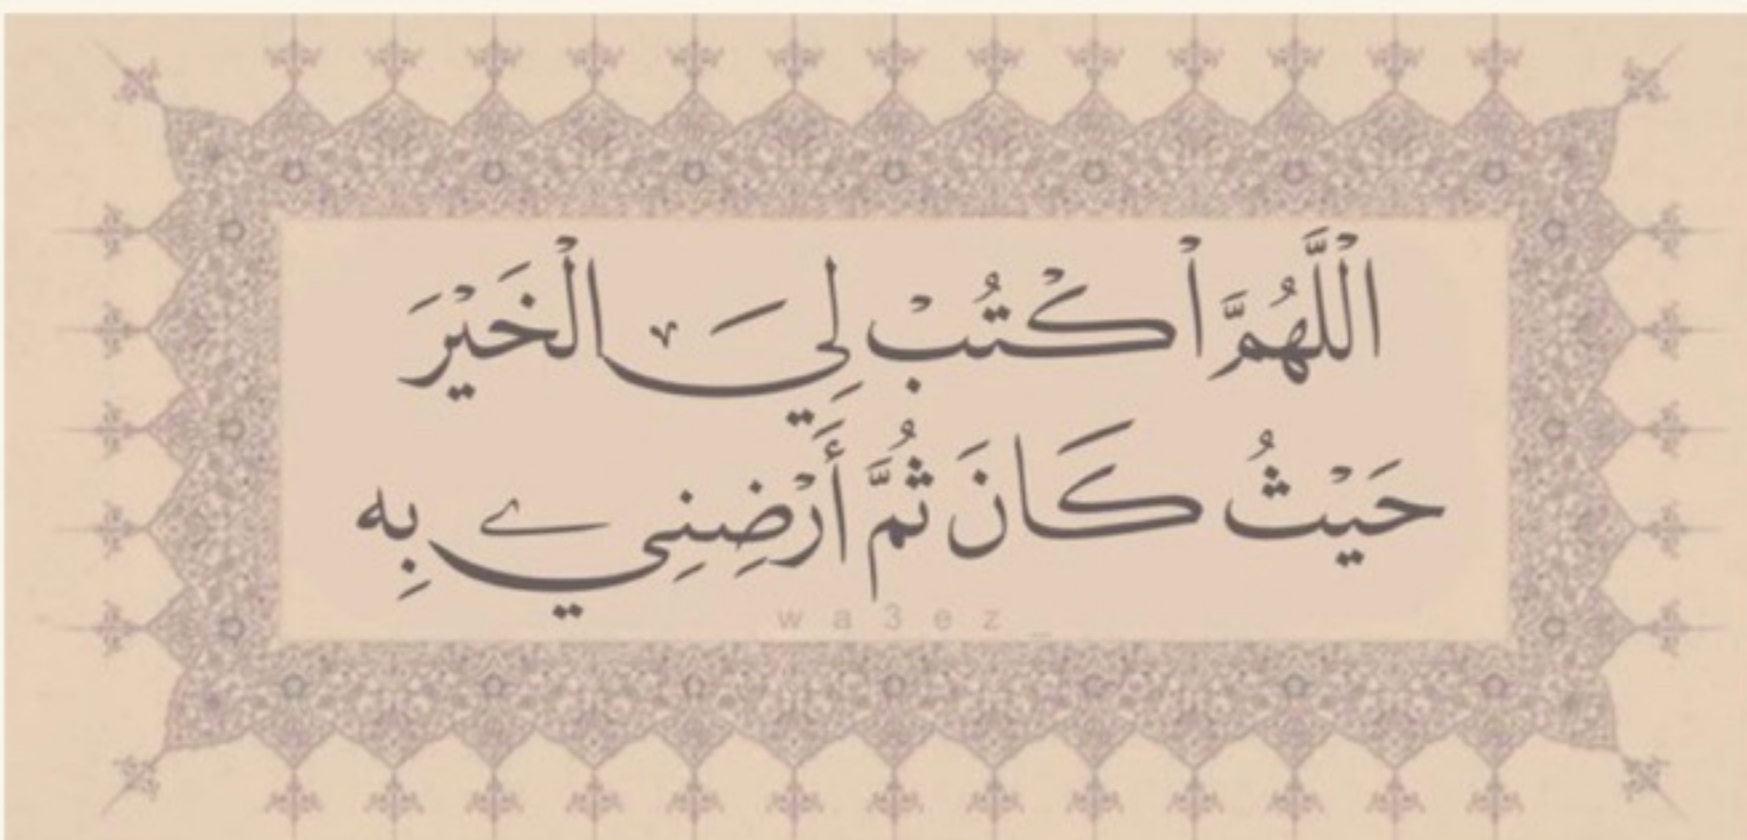 اَللَّهُمَّ اْكْتُبْ لِيَ الْخَيْرَ
حَيْثُ كَانَ ثُمَّ أَرْضِنِي بِه
wa3ez_